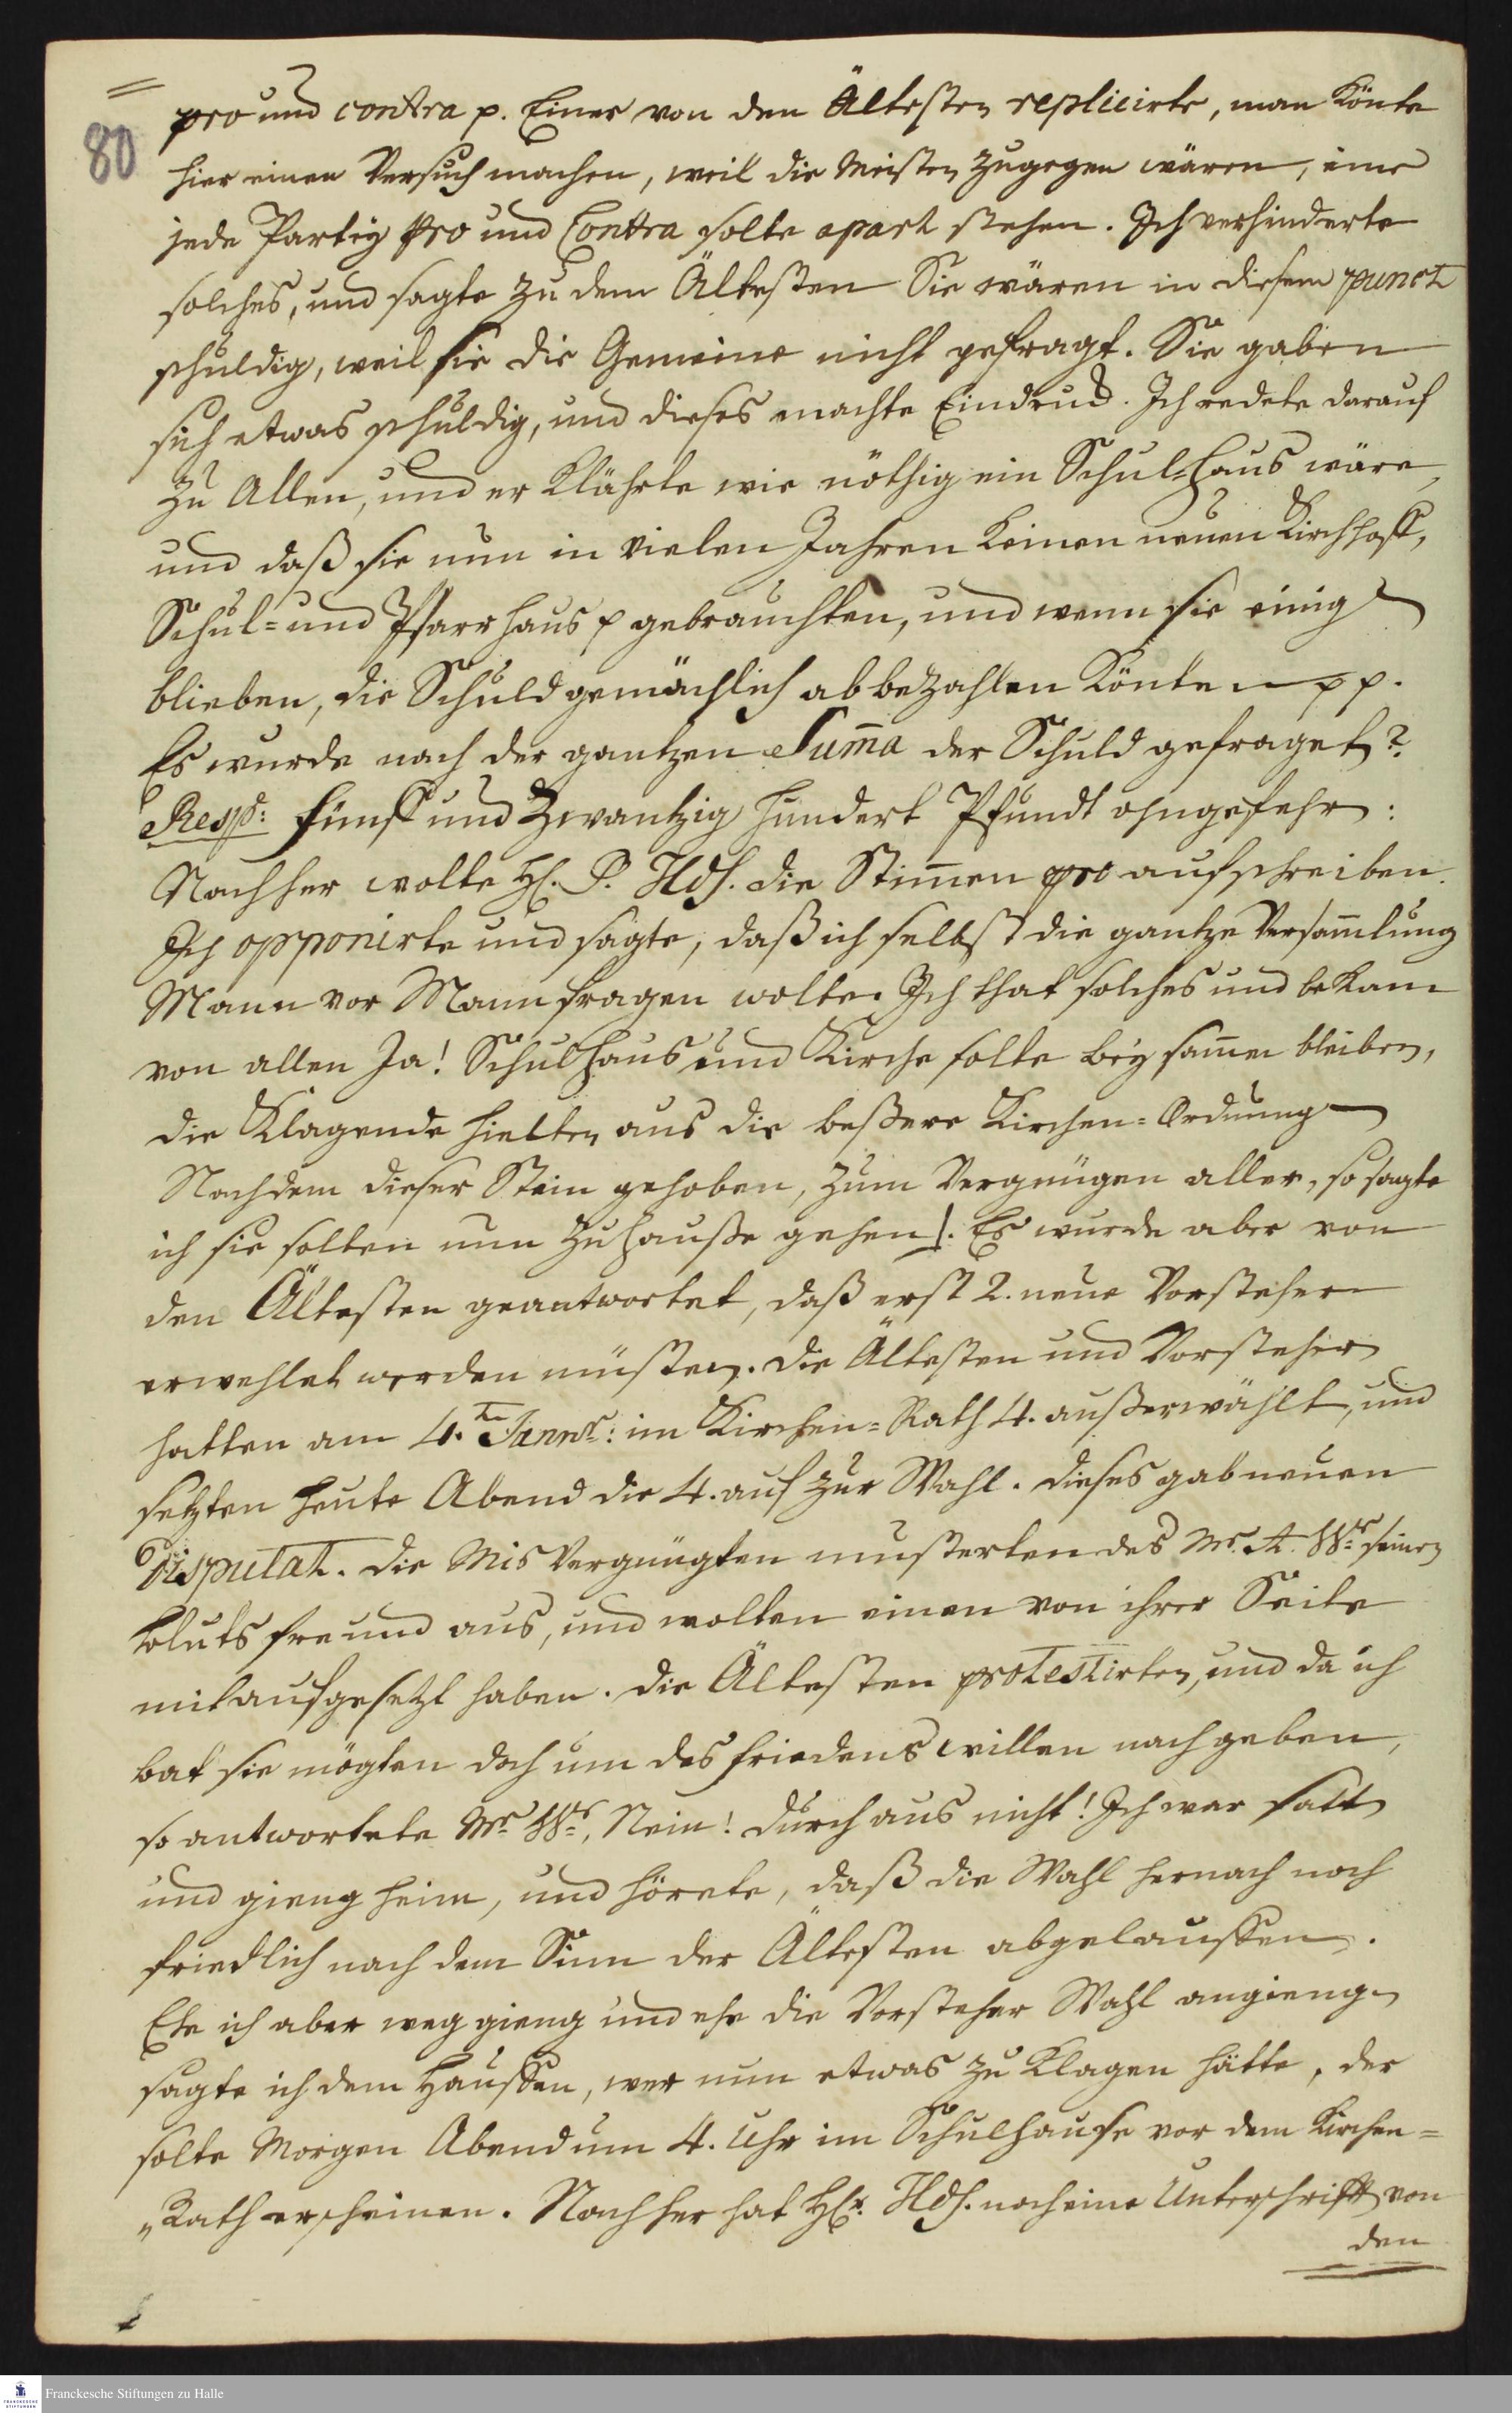 80
pro und contra p. Einer von den Ältesten replicirte, man könte
hier einen Versuch machen, weil die Meisten zugegen wären, eine
jede Partey Pro und Contra solte apart stehen. Ich verhinderte
solches, und sagte zu dem Ältesten Sie wären in diesem punct
schuldig, weil sie die Gemeine nicht gefragt. Sie gaben
sich etwas schuldig, und dieses machte Eindruck. Ich redete darauf
zu Allen, und er klährte wie nöthig ein Schul-Haus wäre,
und daß sie nun in vielen Jahren keinen neuen Kirchhoff,
Schul- und Pfarrhaus p gebrauchten, und wenn sie einig
blieben, die Schuld gemächlich abbezahlen könten pp.
Es wurde nach der gantzen Sum̄a der Schuld gefraget?
Resp: fünff und Zwantzig hundert Pfundt ohngefehr:
Nachher wolte H. P. Hds. die Stim̄en pro aufschreiben.
Ich opponirte und sagte, daß ich selbst die gantze Versam̄lung
Mann vor Mann fragen wolte. Ich that solches und bekam
von allen Ja! Schulhaus und Kirche solte beysam̄en bleiben,
die Klagende hielten aus die beßere Kirchen-Ordnung
Nachdem dieser Stein gehoben, zum Vergnügen aller, so sagte
ich sie solten nun zu Hauße gehen!. Es wurde aber von
den Ältesten geantwortet, daß erst 2. neue Vorsteher
erwehlet werden müsten. die Ältesten und Vorsteher
hatten am 4.ten Janr: im Kirchen-Rath 4. außerwählt, und
setzten heute Abend die 4. auf zur Wahl. dieses gab neuen
Disputat. die Mis Vergnügten musterten des Mr. A. Wr: seinen
Blutsfreund aus, und wolten einen von ihrer Seite
mit aufgesetzt haben. die Ältesten protestirten, und da ich
bat sie mögten doch um des friedens willen nach geben,
so antwortete Mr Wr:, Nein! durchaus nicht! Ich war satt
und gieng heim, und hörete, daß die Wahl hernach noch
friedlich nach dem Sinn der Ältesten abgelauffen.
Ehe ich aber weg gieng und ehe die Vorsteher Wahl angieng
sagte ich dem Hauffen, wer nun etwas zu klagen hätte, der
solte Morgen Abend um 4. Uhr im Schulhause vor dem Kirchen-
Rath erscheinen. Nachher hat Hr. Hds. noch eine Unterschrifft von
den
Franckesche Stiftungen zu Halle